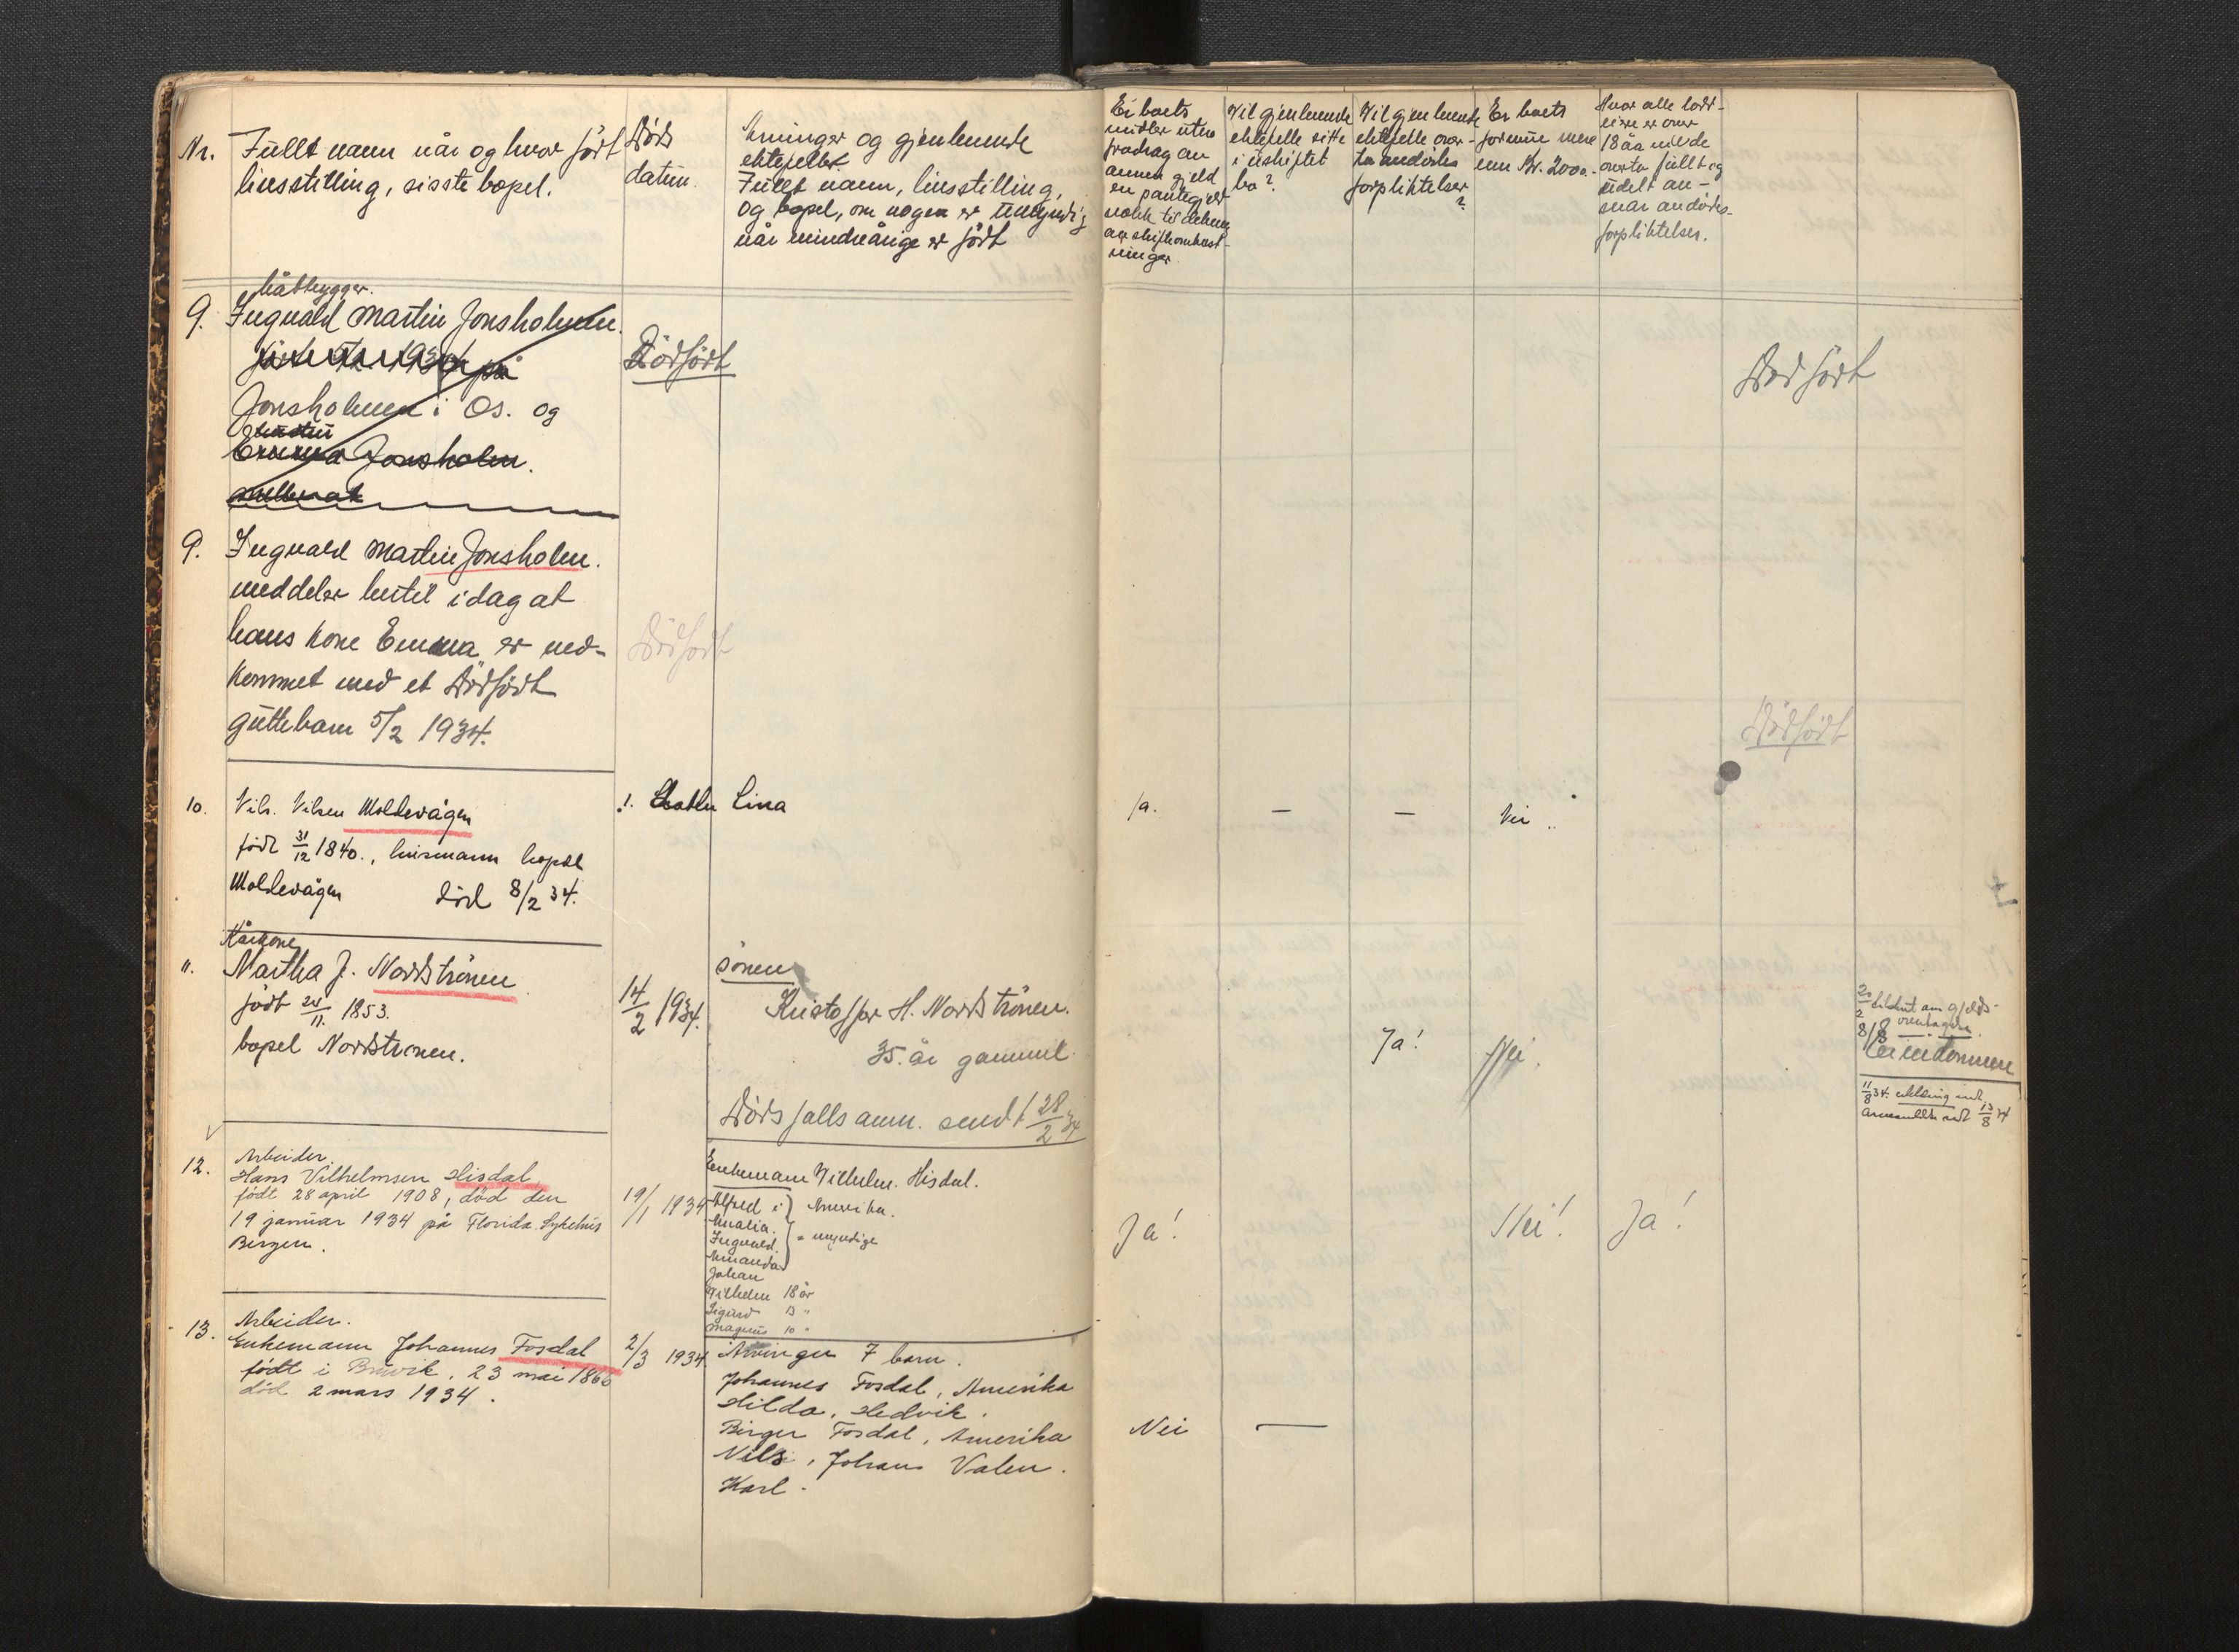 Nr.
Fullt navn når og hvor født
livsstilling, sisste bopel.
Døds
datum
Arvinger og gjenlevende
ektefelle.
Fullt navn, livsstilling,
og bopel, om nogen er umyndig
når mindreårige er født
Er boets
midler uten
fradrag av
annen gjeld
en pantegjeld
nokk til dekning
av skifteomkost-
ninger.
Vil gjenlevende
ektefelle sitte
i uskiftet
bo?
Vil gjenlevende
ektefelle over-
ta avdødes
forpliktelser
?
Er boets
formue mere
enn Kr. 2000.-
Hvor alle lodd-
eiere er over
18 år vil de
overta fullt og
udelt an-
svar avdødes-
forpliktelser.
båtbygger.
9.
Ingvald Martin Jonsholmen.
på
Jonsholmen i Os. og
Emma Jonsholm.
Dødfødt
Død født
9.
Ingvald Martin Jonsholm.
meddeler hertil idag at
hans kone Emma er ned-
kommet med et Dødfødt
guttebarn 5/2 1934.
Dødfødt
Dødfødt
10.
Nils. Nilsen Moldevågen
født 31/12 1840., husmann bopel
Moldevågen død 8/2 34.
Lina
Ja.
–
–
Nei
Kårkone
11.
Martha J. Nordstrønen
født 24/11. 1853.
bopel Nordstrønen.
14/2 1934.
sønen
Kristoffer H. Nordstrønen.
35. år gammel.
Dødsfalls anm. sendt 28/2 34
Ja!
Nei.
8/8
11/8 34.
13/8 34
12.
Arbeider.
Hans Vilhelmsen Hisdal,
født 28 april 1908, død den
19 januar 1934 på Florida Sykehus
Bergen.
19/1 1934
Enkemann Vilhelm. Hisdal.
Alfred i } Amerika.
Amalia.
Ingvald. } = umyndige
Amanda
Johan
Vilhelm 18 år
Sigurd 13 "
Magnus 10 "
Ja!
Nei!
Ja!
13.
Arbeider.
Enkemann Johannes Fosdal
født i Bruvik, 23 mai 1866
død 2 mars 1934.
2/3 1934.
Arvinger 7 barn.
Johannes Fosdal, Amerika
Hilda, Hedvik.
Birger Fosdal, Amerika
Nils, Johans Valen.
Karl.
Nei
—